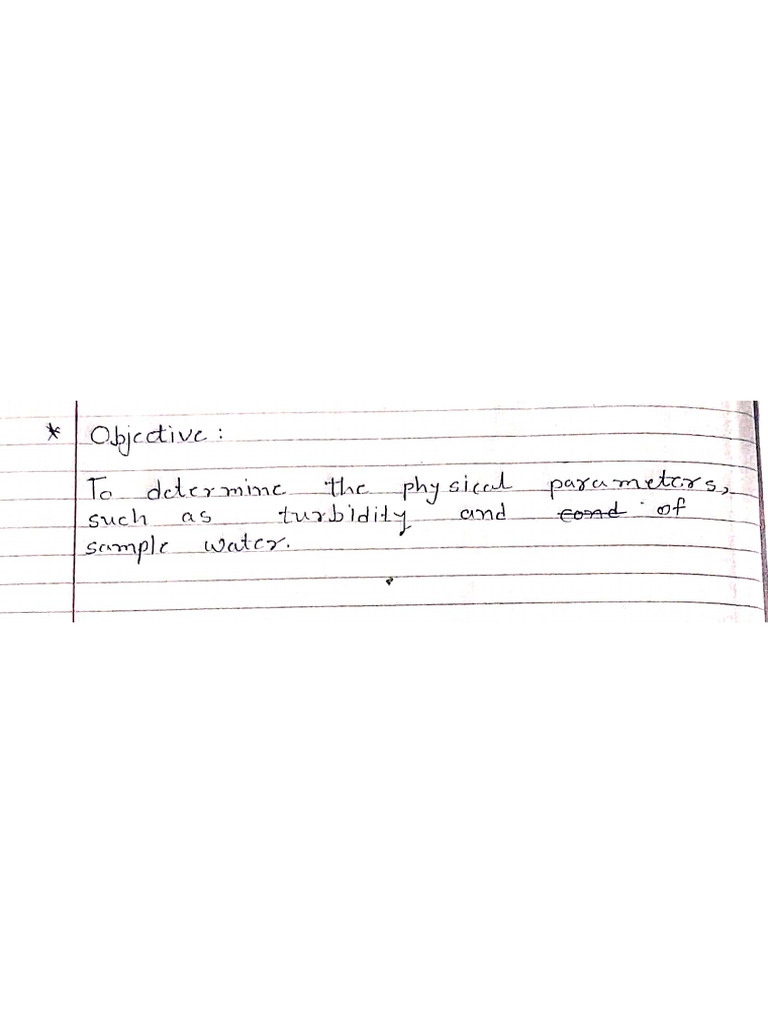 * Objective :
To determine the physical parameters,
such as turbidity and cond of
sample water.